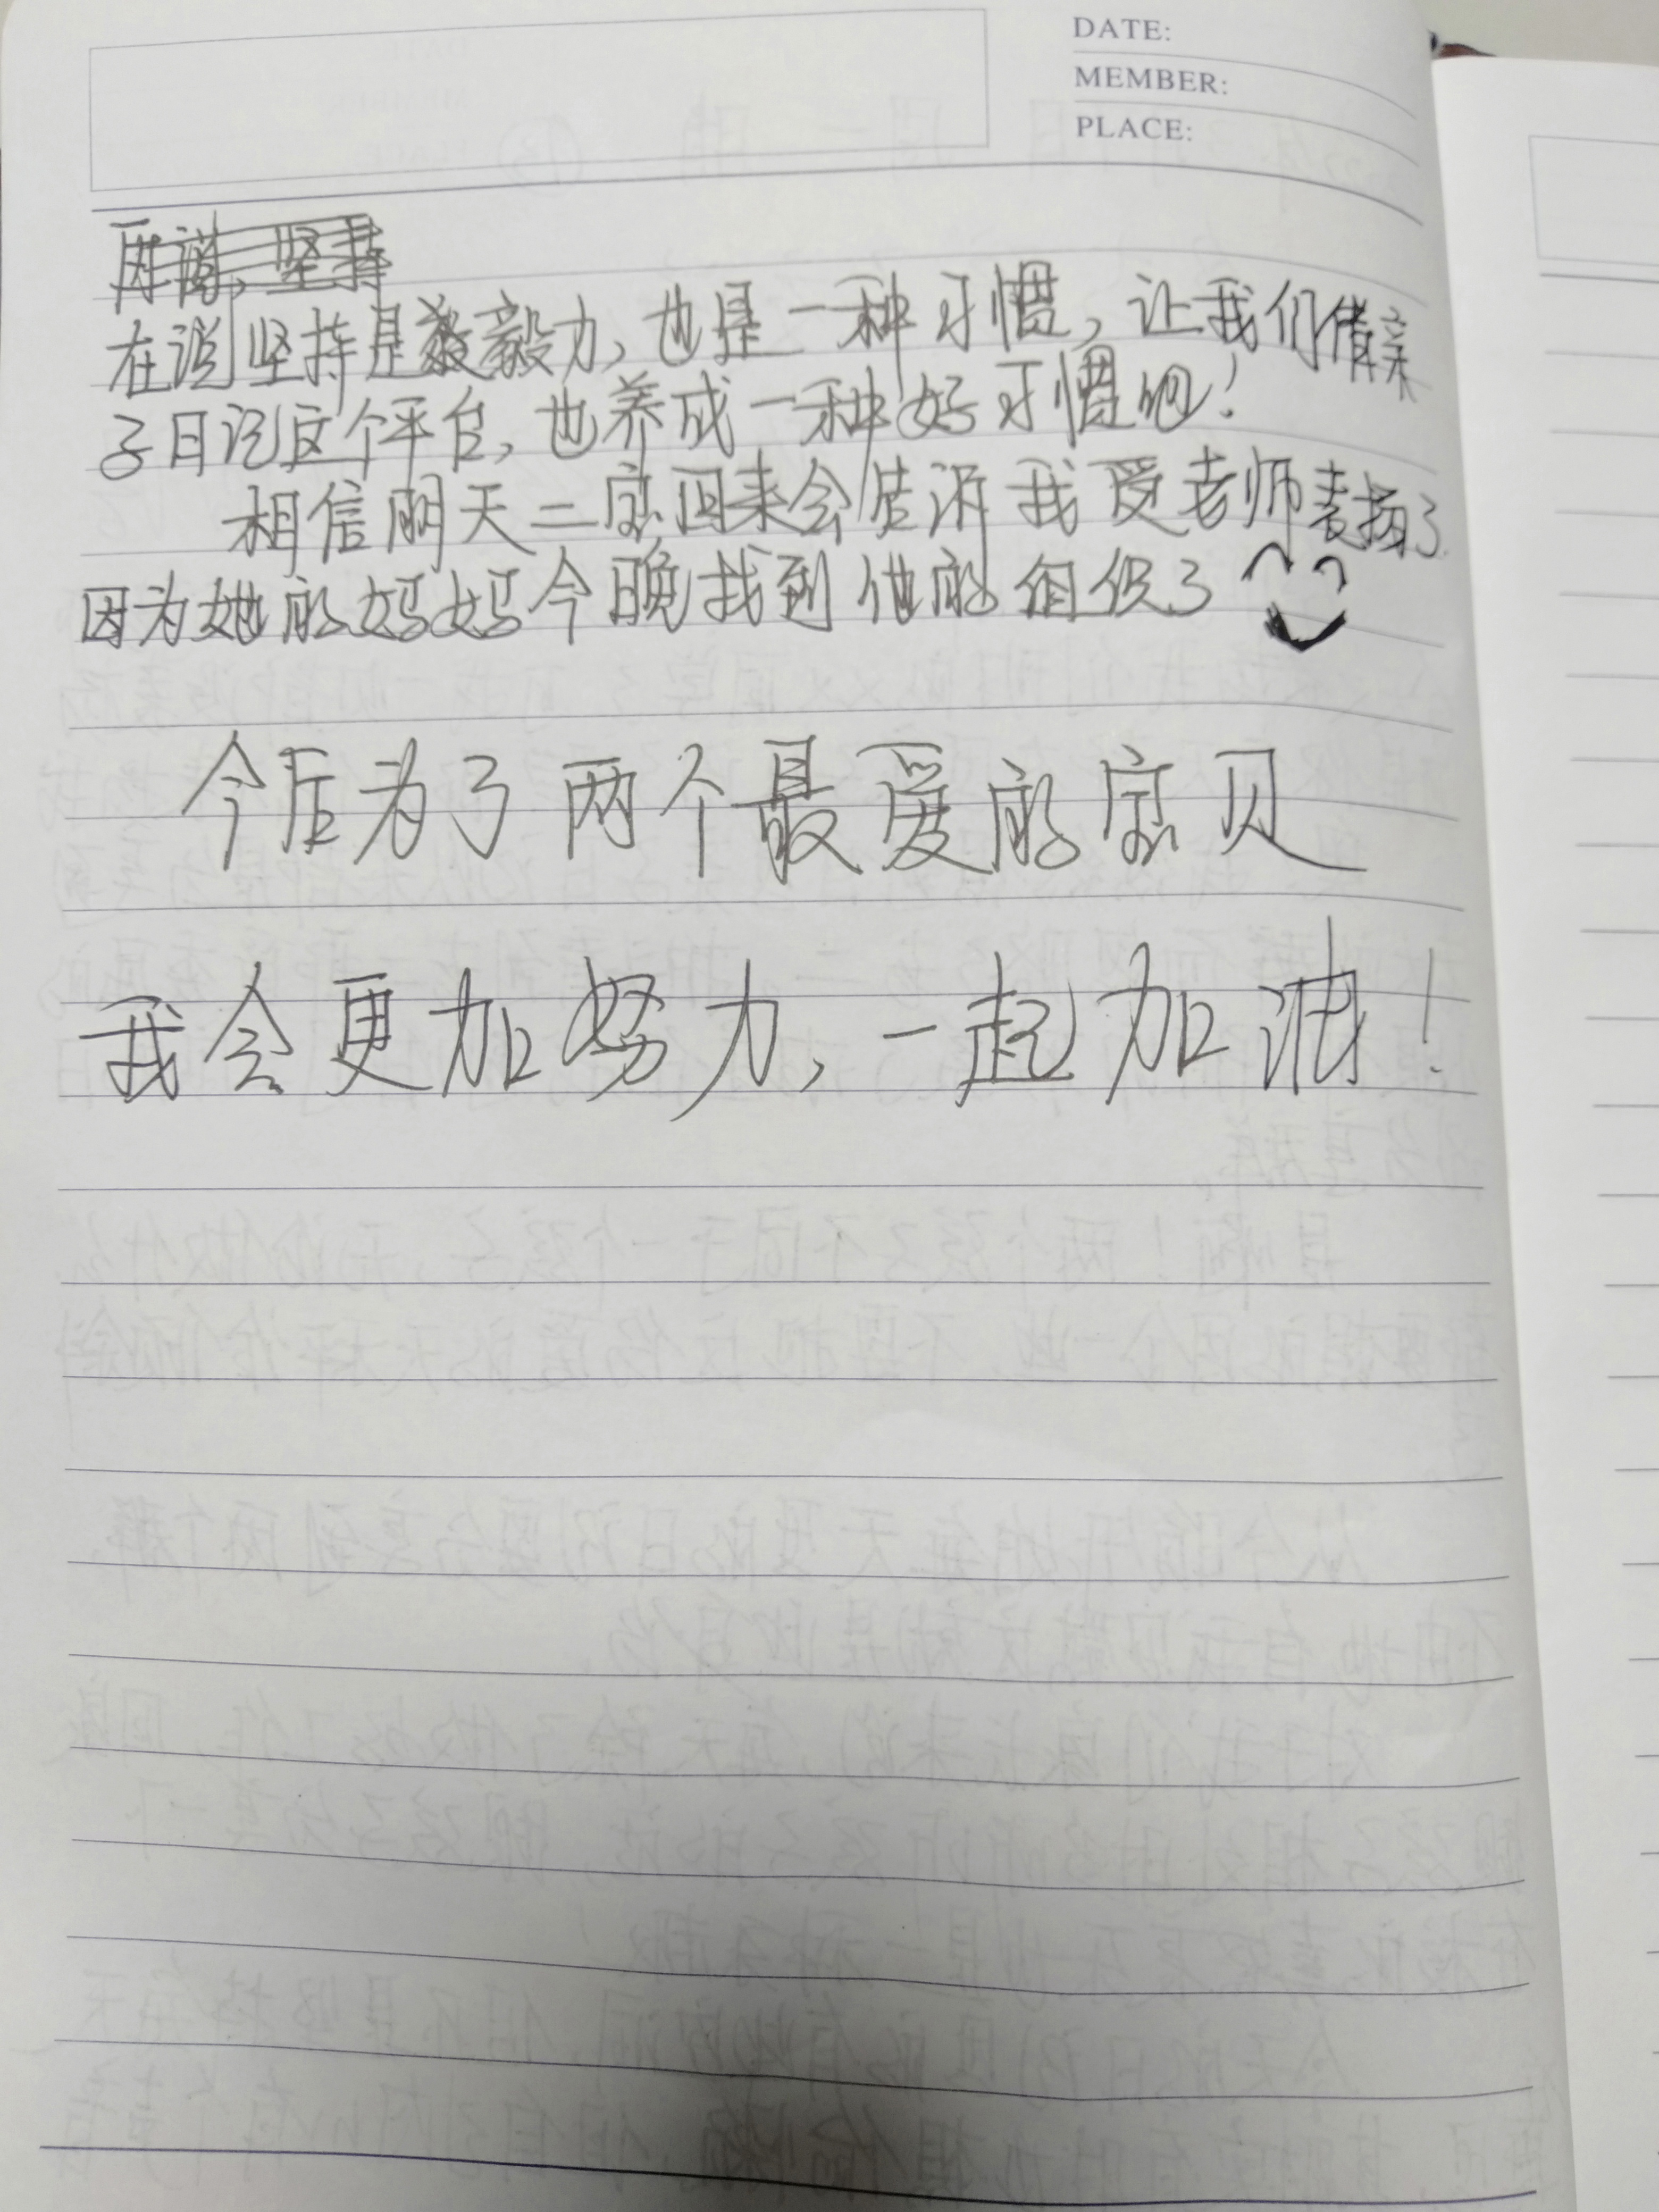 DATE:
MEMBER:
PLACE:
再说，坚持
在说坚持是毅毅力，也是一种习惯，让我们借亲
子日记这个平台，也养成一种好习惯吧！
相信明天二宝回来会告诉我受老师表扬了
因为她的妈妈今晚找到他的组织了
今后为了两个最爱的宝贝
我会更加努力，一起加油！